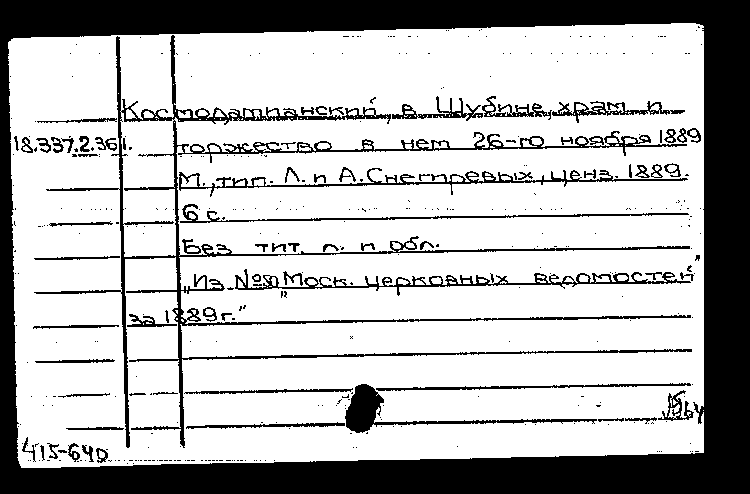 Космодамианский, в Шубине, храм и
18.337.2.361. торжество в нем 26-го ноября 1889
М., тип. Л. и А. Снегиревых, ценз. 1889.
6 с.
Без тит. л. и обл.
„Из №50 „Моск. церковных ведомостей"
за 1889г."
415-640